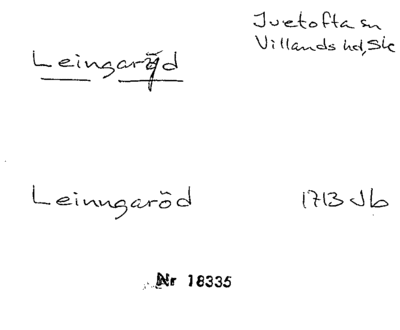 Ivetofta sn
Villands hd, Sk
Leingaröd
Leinngaröd 1713 Jb
Nr 18335